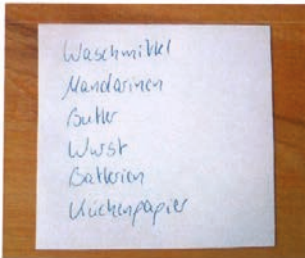 Waschmittel
Mandarinen
Butter
Wurst
Batterien
Küchenpapier